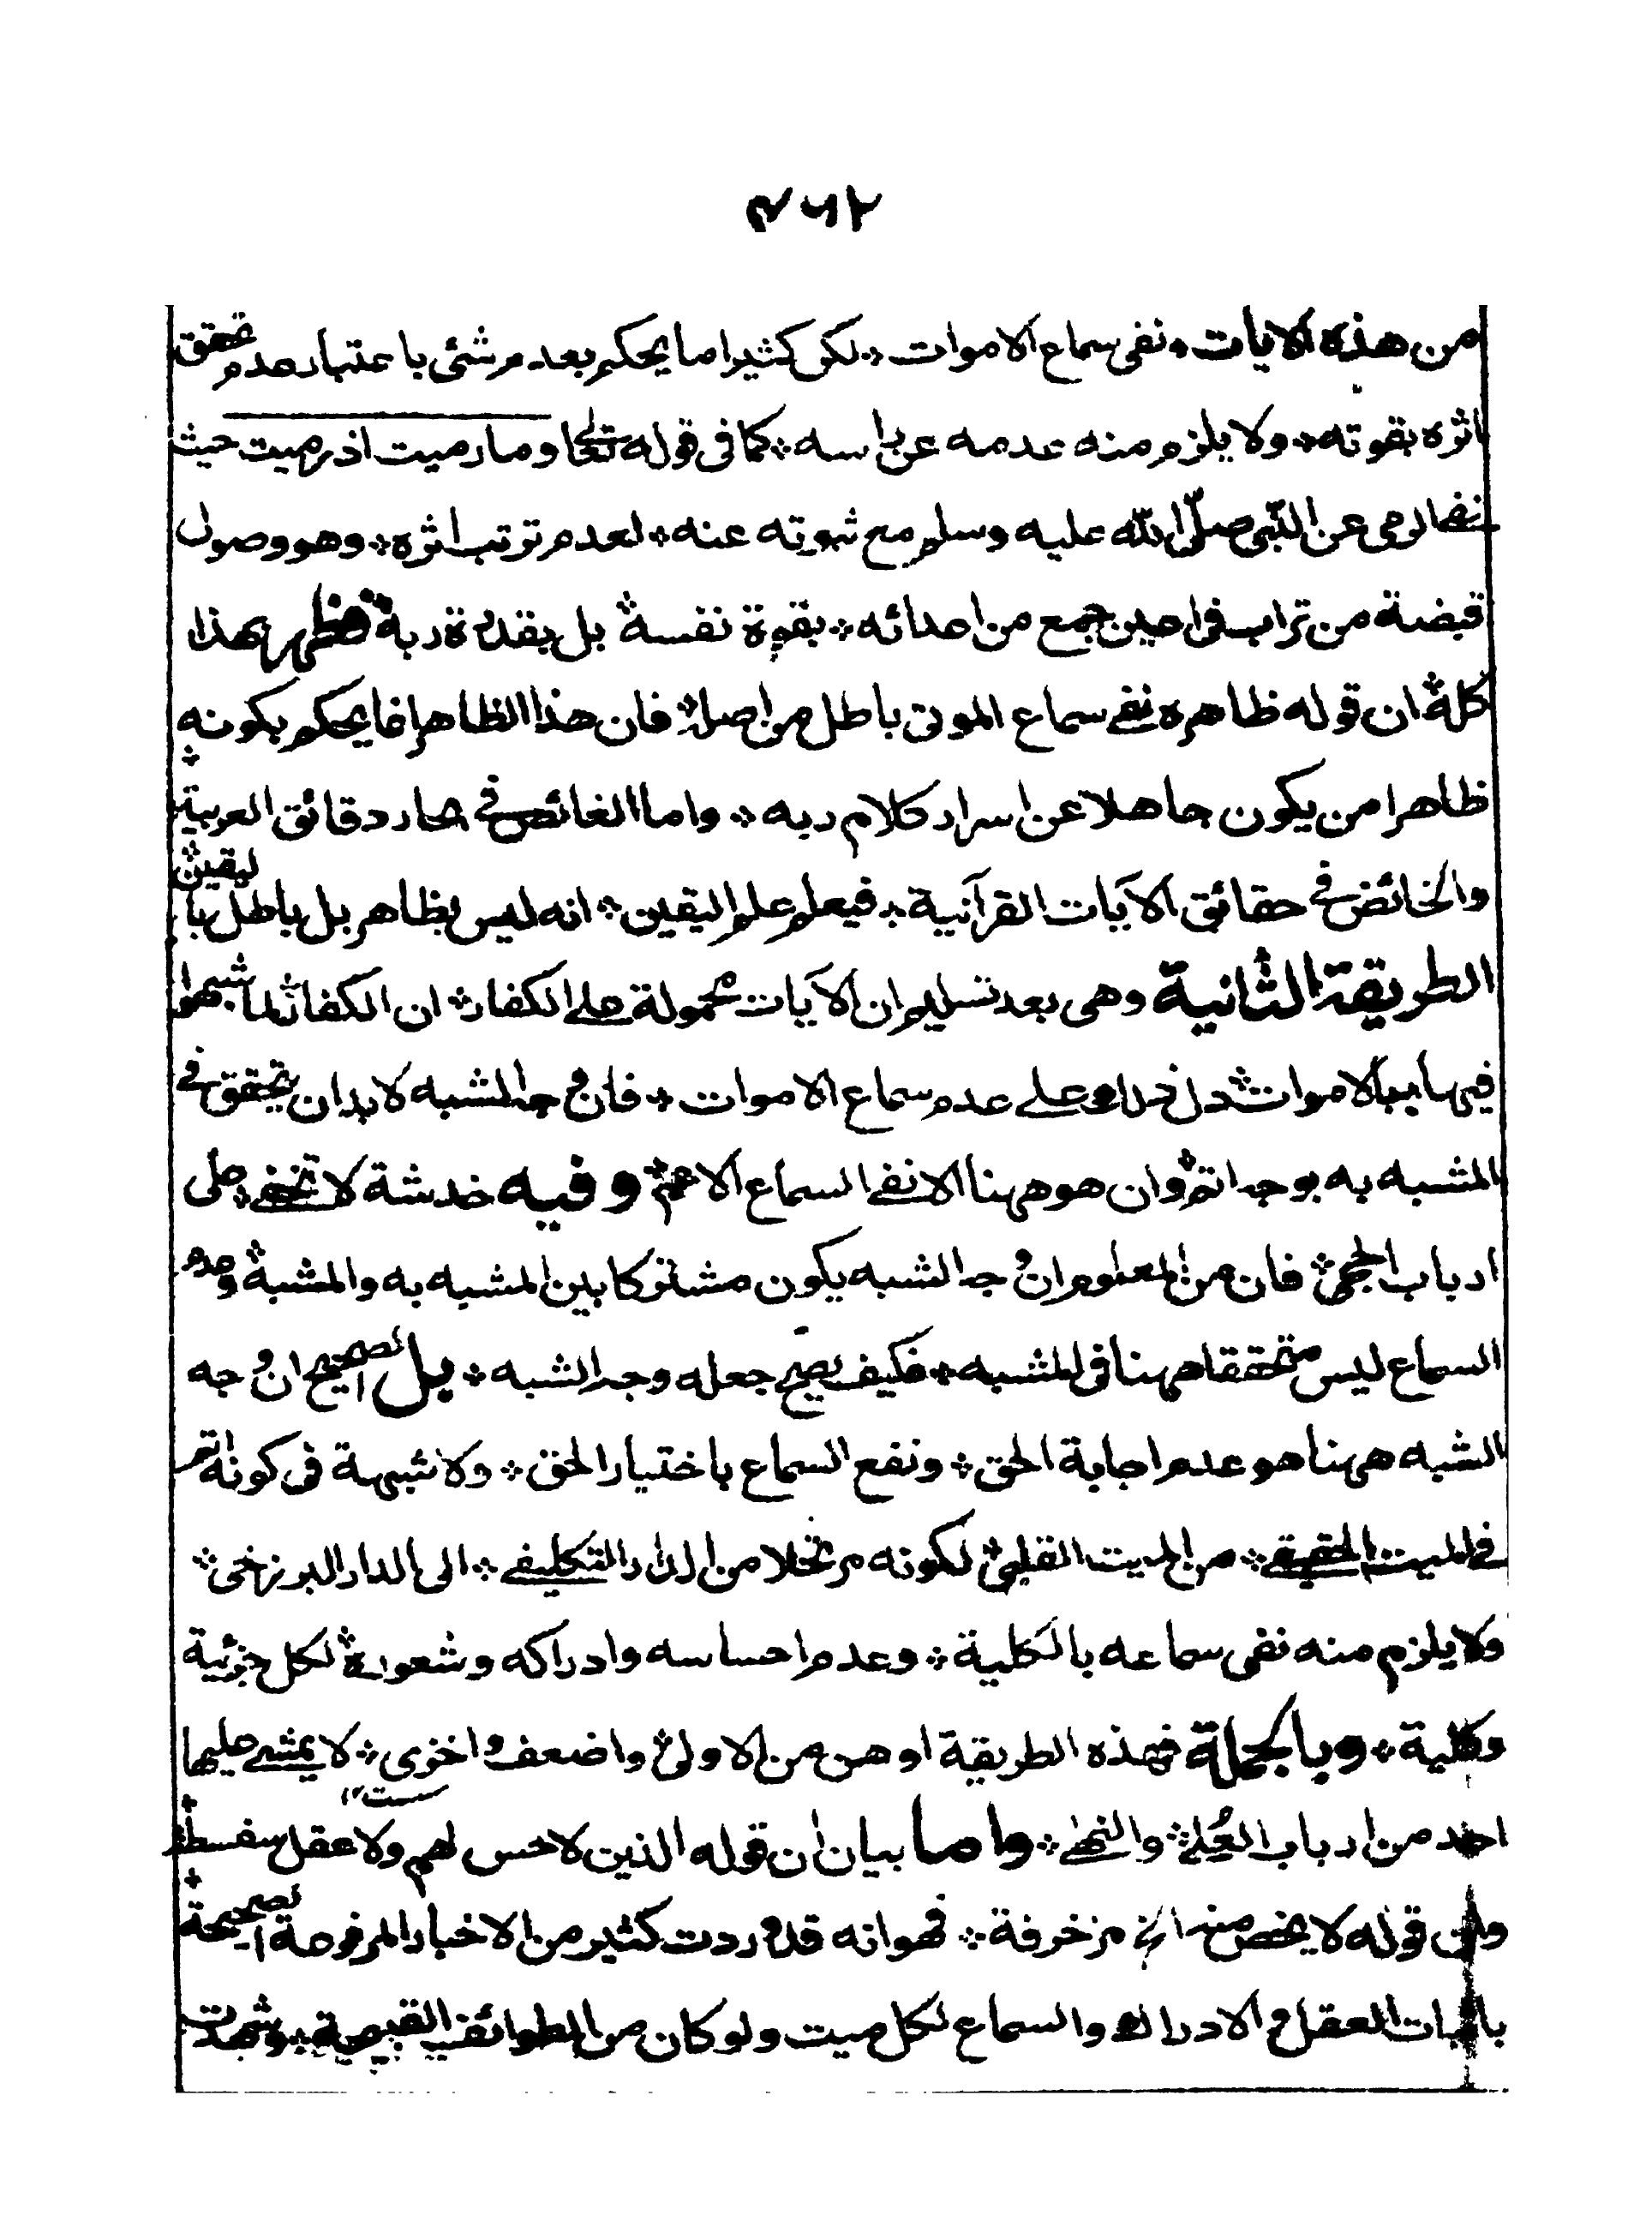 ٤٦٢
من هذه الايات ٭ نفى سماع الاموات ٭ لكن كثيرا ما يحكم بعدم شئ باعتبار عدم تحقق
اثره بقوته ٭ ولا يلزم منه عدمه عن راسه ٭ كما فى قوله تعالى وما رميت اذ رميت حيث
نفى الرمى عن النبى صلى الله عليه وسلم مع ثبوته عنه ٭ لعدم ترتب اثره ٭ وهو وصول
قبضة من تراب فى اعين جمع من اعدائه ٭ بقوة نفسه ٭ بل بقدرة ربه ٭ فظهر بهذا
كله ٭ ان قوله ظاهره نفى سماع الموتى باطل من اصله ٭ فان هذا الظاهر انما يحكم بكونه
ظاهرا من يكون جاهلا عن اسرار كلام ربه ٭ واما الغائص فى بحار دقائق العربية ٭
والخائض فى حقائق الآيات القرآنية ٭ فيعلم علم اليقين ٭ انه ليس بظاهر بل باطل باليقين ٭
الطريقة الثانية وهى بعد تسليم ان الآيات محمولة على الكفار ٭ ان الكفار لما شبهوا
فيها بالاموات ٭ دل ذلك على عدم سماع الاموات ٭ فان وجه الشبه لا بد ان يتحقق فى
المشبه به بوجه اتم ٭ وان هو ههنا الا نفى السماع الاعم ٭ وفيه خدشة لا تخفى ٭ على
ارباب الحجى ٭ فان من المعلوم ان وجه الشبه يكون مشتركا بين المشبه به والمشبه ٭ وعدم
السماع ليس متحققا ههنا فى المشبه ٭ فكيف يصح جعله وجه الشبه ٭ بل الصحيح ان وجه
الشبه ههنا هو عدم اجابة الحق ٭ ونفع السماع باختيار الحق ٭ ولا شبهة فى كونه اتم
فى الميت الحقيقى ٭ من الميت القلبى ٭ لكونه مرتحلا من الدار التكليفى ٭ الى الدار البرزخى ٭
ولا يلزم منه نفى سماعه بالكلية ٭ وعدم احساسه وادراكه وشعوره ٭ لكل جزئية
وكلية ٭ وبالجملة فهذه الطريقة اوهن من الاولى ٭ واضعف واخزى ٭ لا يمشى عليها
احد من ارباب العلى ٭ والنهى ٭ واما بيان ان قوله الذين لا حس لهم ولا عقل سفسطة ٭
وان قوله لا يخص منه الخ مزخرفة ٭ فهو انه قد وردت كثير من الاخبار المرفوعة الصحيحة ٭
باثبات العقل والادراك والسماع لكل ميت ولو كان من الطوائف القبيحة ٭ وشهدت